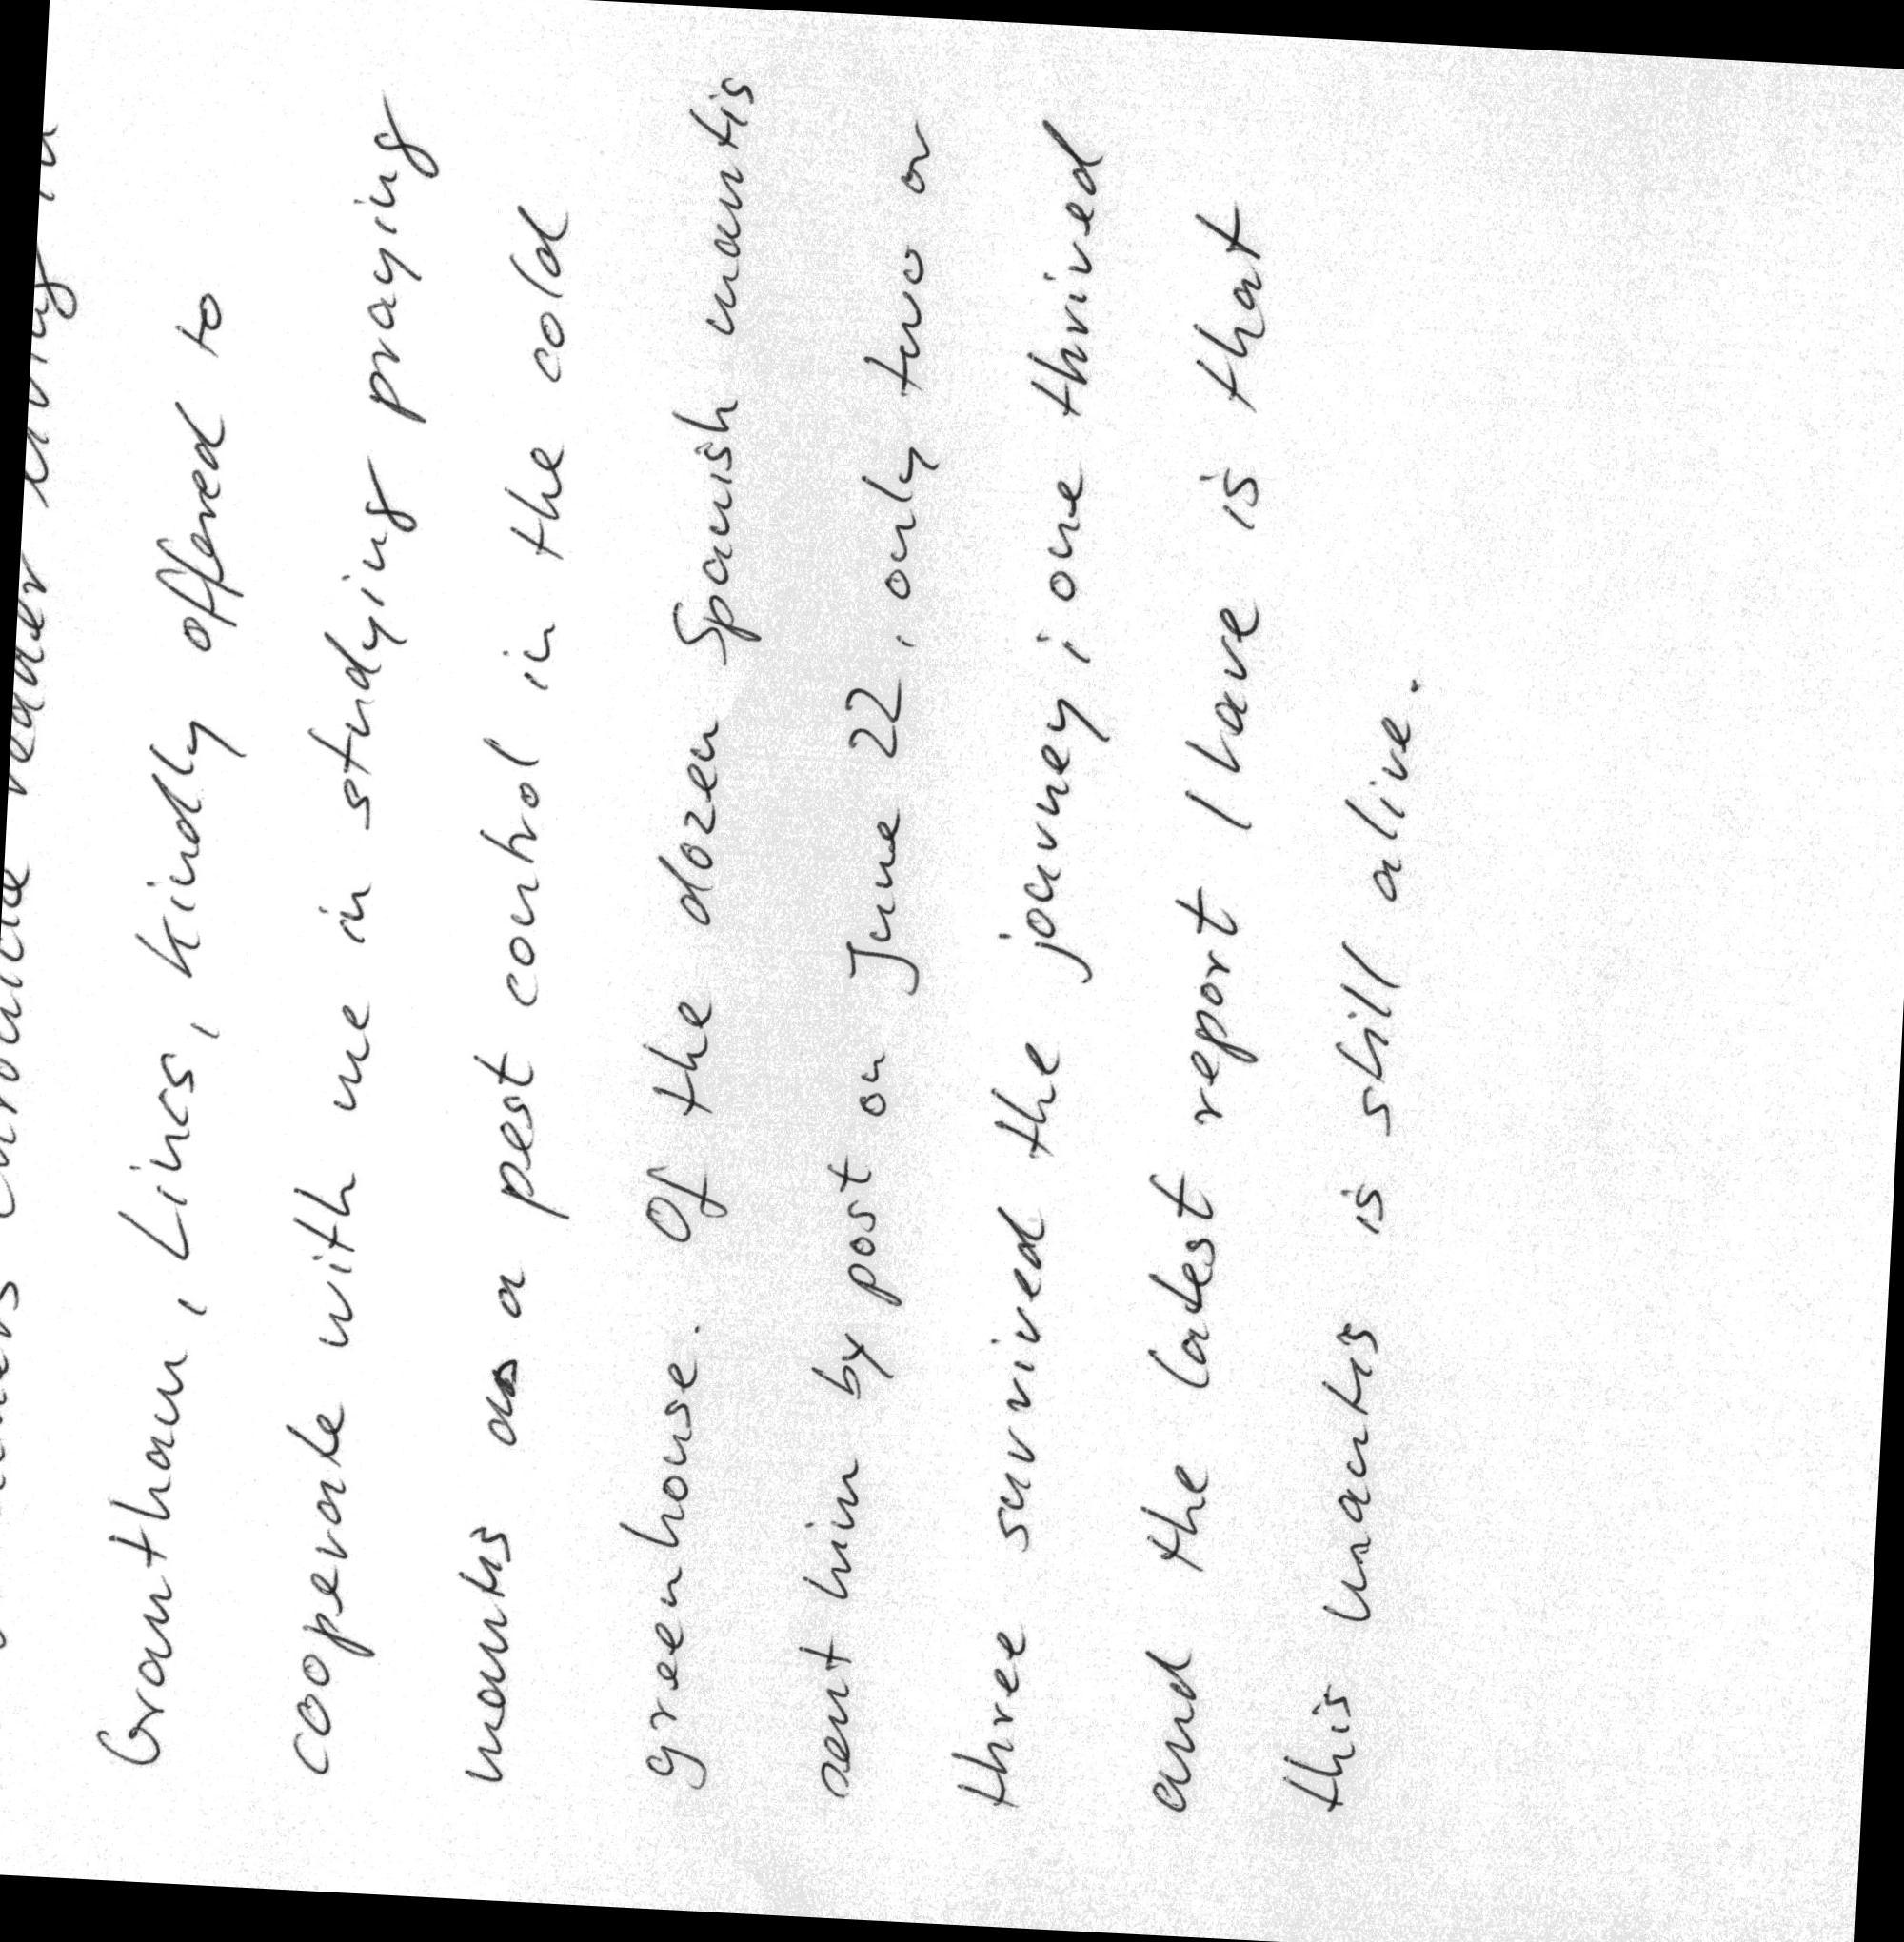 reader living in
Grantham, Lincs, kindly offered to
cooperate with me in studying praying
mantis as a pest control in the cold
greenhouse. Of the dozen Spanish mantis
sent him by post on June 22, only two or
three survived the journey; one thrived
and the latest report I have is that
this mantis is still alive.